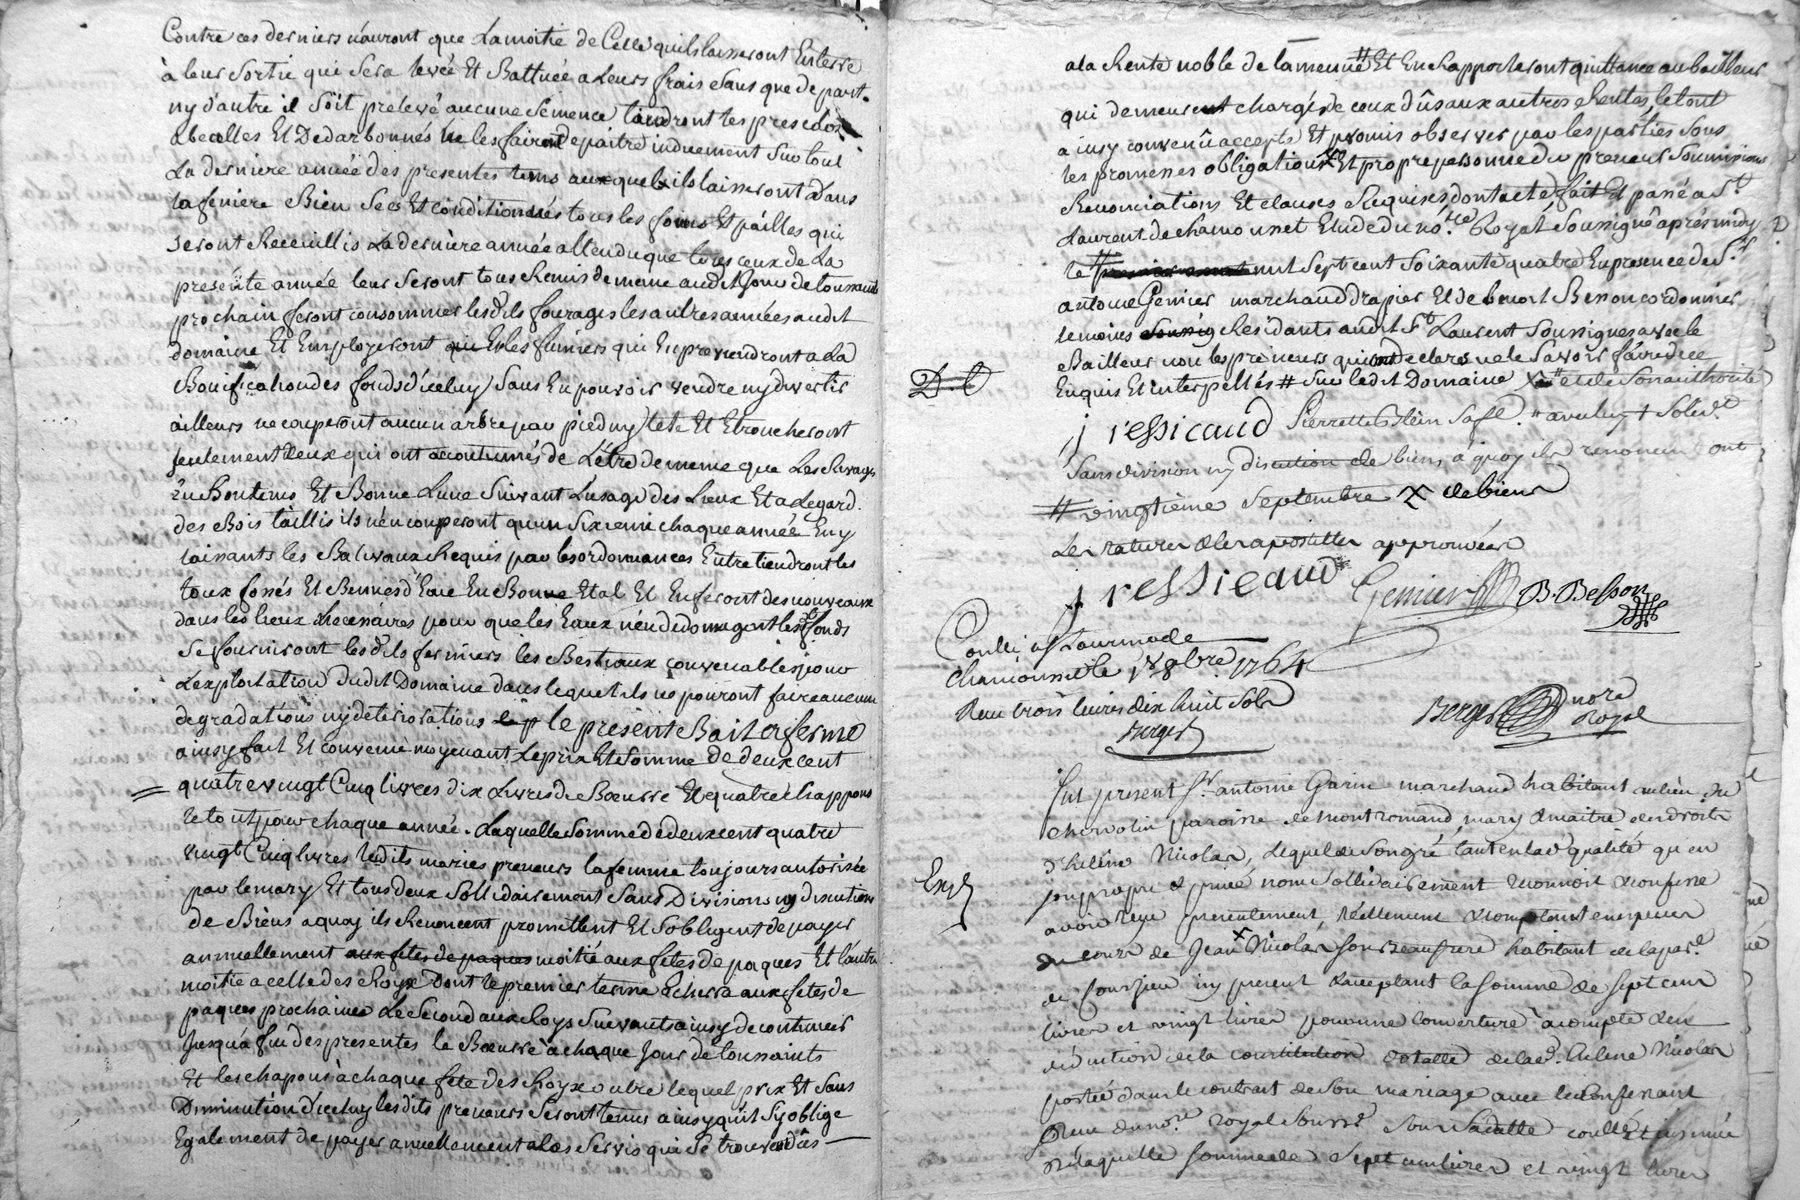 Contre ces derniers n'auront que La moitie de Celle qu'ils laisseront En terre
à leur Sortie qui Sera levée Et Battuée a Leurs frais Sans que de part
ny d'autre il Soit prelevé aucune Semence tiendront les pres clos
abecolles Et Dedarbonnés ne les fairont depaitre induement Sur tout
La derniere année des presentes tems auquel ils laisseront Dans
la feniere Bien Secs Et conditionnés tous les foins Et pailles qui
Seront Receuillis La derniere année attendu que tous ceux de La
presente année leur Seront tous Remis de meme audit Jour de toussaints
prochain feront consommer lesdits fourages les autres années audit
domaine Et Employeront qui En les fumiers qui En proviendront a La
Bonification des fonds d'iceluy Sans En pouvoir vendre ny divertir
ailleurs ne couperont aucun arbre par pied ny tete Et Etroncheront
Seulement Ceux qui ont acoutumés de L'être de meme que Les Sauvages
En Bon tems Et Bonne Lune Suivant L'usage des Lieux Et a L'egard
des Bois taillis ils n'en couperont qu'un Sixieme chaque année En y
laissants les Balivaux Requis par les ordonnances Entretiendront les
tous fossés Et Bennes d'Eaue En Bonne Etat Et En feront des nouveaux
dans les lieux Necessaires pour que les Eaux n'endedomagent lesd fonds
Se fourniront lesdits fermiers les Bestiaux convenables pour
L'exploitation dudit Domaine dans lequel ils ne pouront faire aucune
degradations ny deteriorations le present Bail a ferme
ainsy fait Et convenu moyenant Le prix Et Somme de deux cent
quatre vingt Cinq livres dix Livres de Bœurre Et quatre Chappons
le tout par chaque année. Laquelle Somme de deux cent quatre
vingt Cinq livres lesdits maries preneurs la femme toujours autorisée
par le mary Et tous deux Sollidairement Sans Divisions ny discutions
de Biens a quoy ils Renoncent promettent Et S'obligent de payer
annuellement aux fetes de paques moitié aux fêtes de paques Et l'autre
moitie a celle des Royx Dont le premier terme Echerra aux fetes de
paques prochaines Le Second aux Roys Suivants ainsy de continuer
Jusqu'a fin des presentes le Bœurre à chaque Jour de toussaints
Et les chapons à chaque fete des Royx outre lequel prix Et Sans
Diminution d'iceluy lesdits preneurs Seront tenus ainsy qu'ils S'y oblige
Egalement de payer annuellement a les Servis qui Se trouveront dûs
a la Rente noble de la menue # Et En Rapporteront quittance au bailleur
qui demeurent chargés de ceux dûs aux autres Rentes, le tout
ainsy convenû accepté Et promis observer par les parties Sous
les promesses obligations X Et propre personne du preneur Soumissions
Renonciations Et clauses Requises dont acte fait Et passé a St
Laurent de chamousset Etude du nore Royal Soussigné après midy
le # mil Sept cent Soixante quatre En presence de Sr
antoine Genier marchand drapier Et de Benoit Besson cordonnier
temoins Soussig Residants audit St Laurent Soussignes avec le
Bailleur non les preneurs qui ont declares ne le Savoir faire de ce
Enquis Et interpellés # Sur ledit Domaine X # et de Son authorité
j ressicaud Pierrette Blein Sa fe. # avec luy + Solid.t
Sans division ny discution de biens, a quoy ils renoncent ont
# vingtieme Septembre X de biens
Les ratures & les apostilles approuvées
j ressicaud Genier B. Besson
Conllé Et
Chamousset le 1er 8bre. 1764
Recu trois livres dix huit Sols
Berger
Berger nore Royal
Fut present Sr. antoine Garin marchand habitant au lieu de
chervolin paroisse de montromand, mary & maitre des droits
d'helène Nicolas, lequel de Son gré, tant en lad qualité qu'en
Exp.
Son propre & privé nom Sollidairement reconnoit & confesse
avoir reçu presentement, réellement & comptant en especes
du cours de Jean X Nicolas Son Beaufrere habitant de la par.e
de Courzieu icy present & acceptant la Somme de Sept cens
livres et vingt livres pour une couverture à compte & en
deduction de la constitution dotalle de lad. helene Nicolas
portée dans le contrat de Son mariage avec le confessant
Reçu du no.re royal Sousig.é Sous Sa datte conllé Et insinué
De laquelle Somme de Sept cens livres et vingt livres